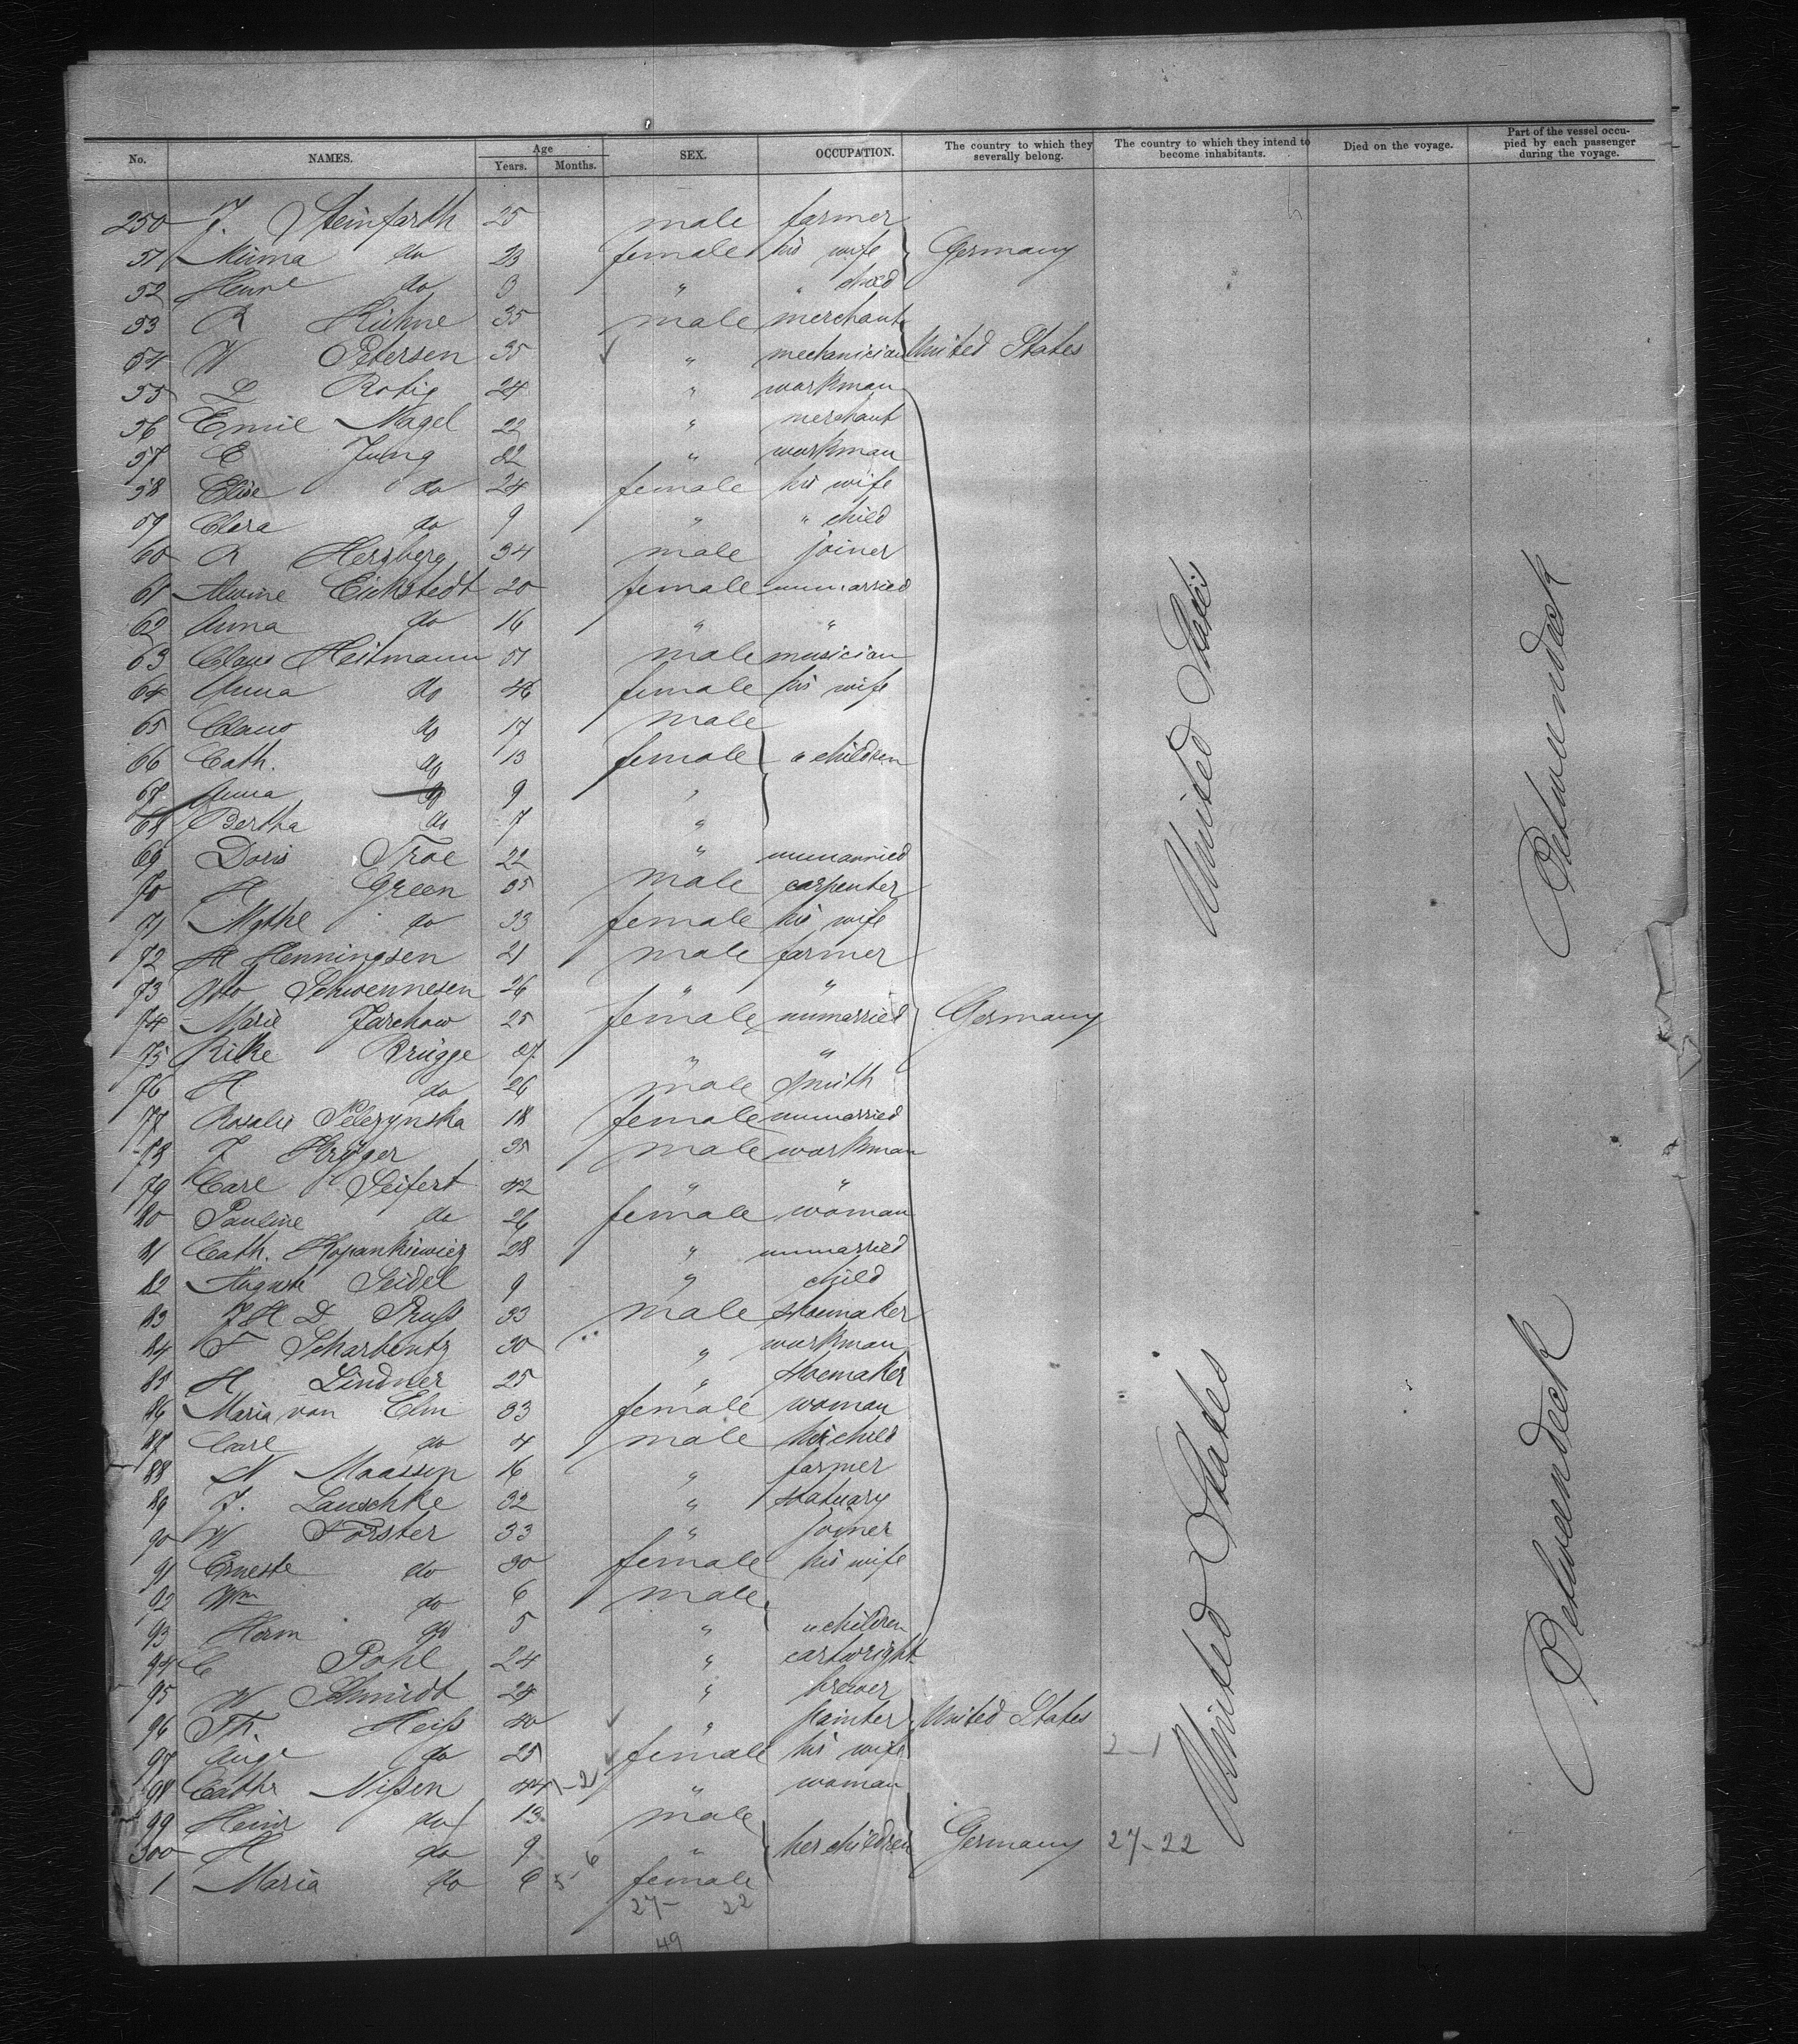 No. NAMES. Age Years. Months. SEX. OCCUPATION. The country to which they severally belong. The country to which they intend to become inhabitants. Died on the voyage. Part of the vessel occupied by each passenger during the voyage.
250 J. Steinfarth 25 male farmer
51 Minna do 23 female his wife Germany
52 do 3 " " child
53 R Kühne 35 male merchant
54 W Petersen 35 " mechanician United States
55 L Rotig 24 " workman
56 Emil Nagel 22 " merchant
57 E Jung 22 " workman
58 Elise do 24 female his wife
59 Clara do 9 " " child
60 R Herzberg 34 male joiner
61 Alwine Eickstedt 20 female unmarried
62 Anna do 16 " "
63 Claus Heitmann 51 male musician
64 Anna do 46 female his wife
65 Claus do 17 male
66 Cath. do 13 female " children
67 Anna do 9 "
68 Bertha do 7 "
69 Doris Troe 22 " unmarried
70 H Green 35 male carpenter
71 Mathl do 33 female his wife
72 H Henningsen 21 male farmer
73 Otto Schwennesen 26 " "
74 Marie Jarchow 25 female unmarried Germany
75 Rike Brügge 27 " "
76 H do 26 male smith
77 Rosalie Pelezynska 18 female unmarried
78 J Kröger 35 male workman
79 Carl Seifert 42 " "
80 Pauline do 26 female woman
81 Cath. Kopankiewicz 28 " unmarried
82 Auguste Seidel 9 " child
83 J H D Pruß 33 male shoemaker
84 F Scharbentz 30 " workman
85 H Lindner 25 " shoemaker
86 Maria von Elm 33 female woman
87 Carl do 4 male her child
88 N Maassen 16 " farmer
89 J. Lauschke 32 " statuary
90 W Förster 33 " joiner
91 Erneste do 30 female his wife
92 Wm do 6 male
93 Herm do 5 " " children
94 C Pohl 24 " cartwright
95 W Schmidt 24 " brewer
96 Th. Heiß 40 " painter United States
97 do 25 female his wife 2-1
98 Cathr Nißen 44 1-2 " woman
99 Heinr do 13 male
300 H do 9 " her children Germany 27-22
1 Maria do 6 5 6 female
27- 22
49
United States
United States
Betweendeck
Betweendeck